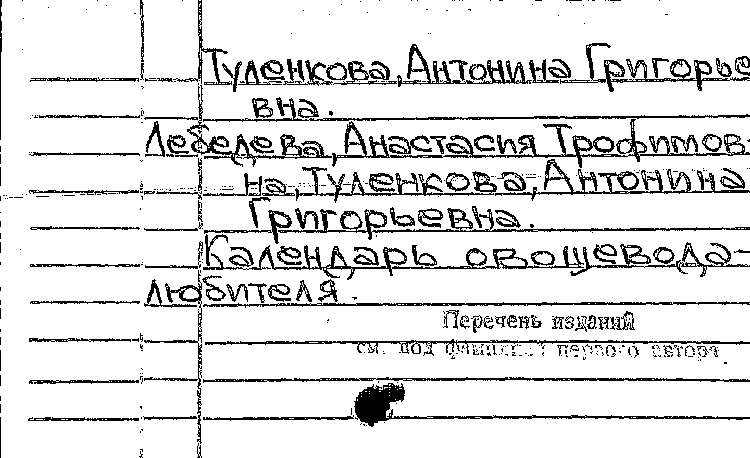 Туленкова, Антонина Григорье
вна.
Лебедева, Анастасия Трофимов-
на, Туленкова, Антонина
Григорьевна.
Календарь овощевода-
любителя.
Перечень изданий
см. под фамилией первого автора